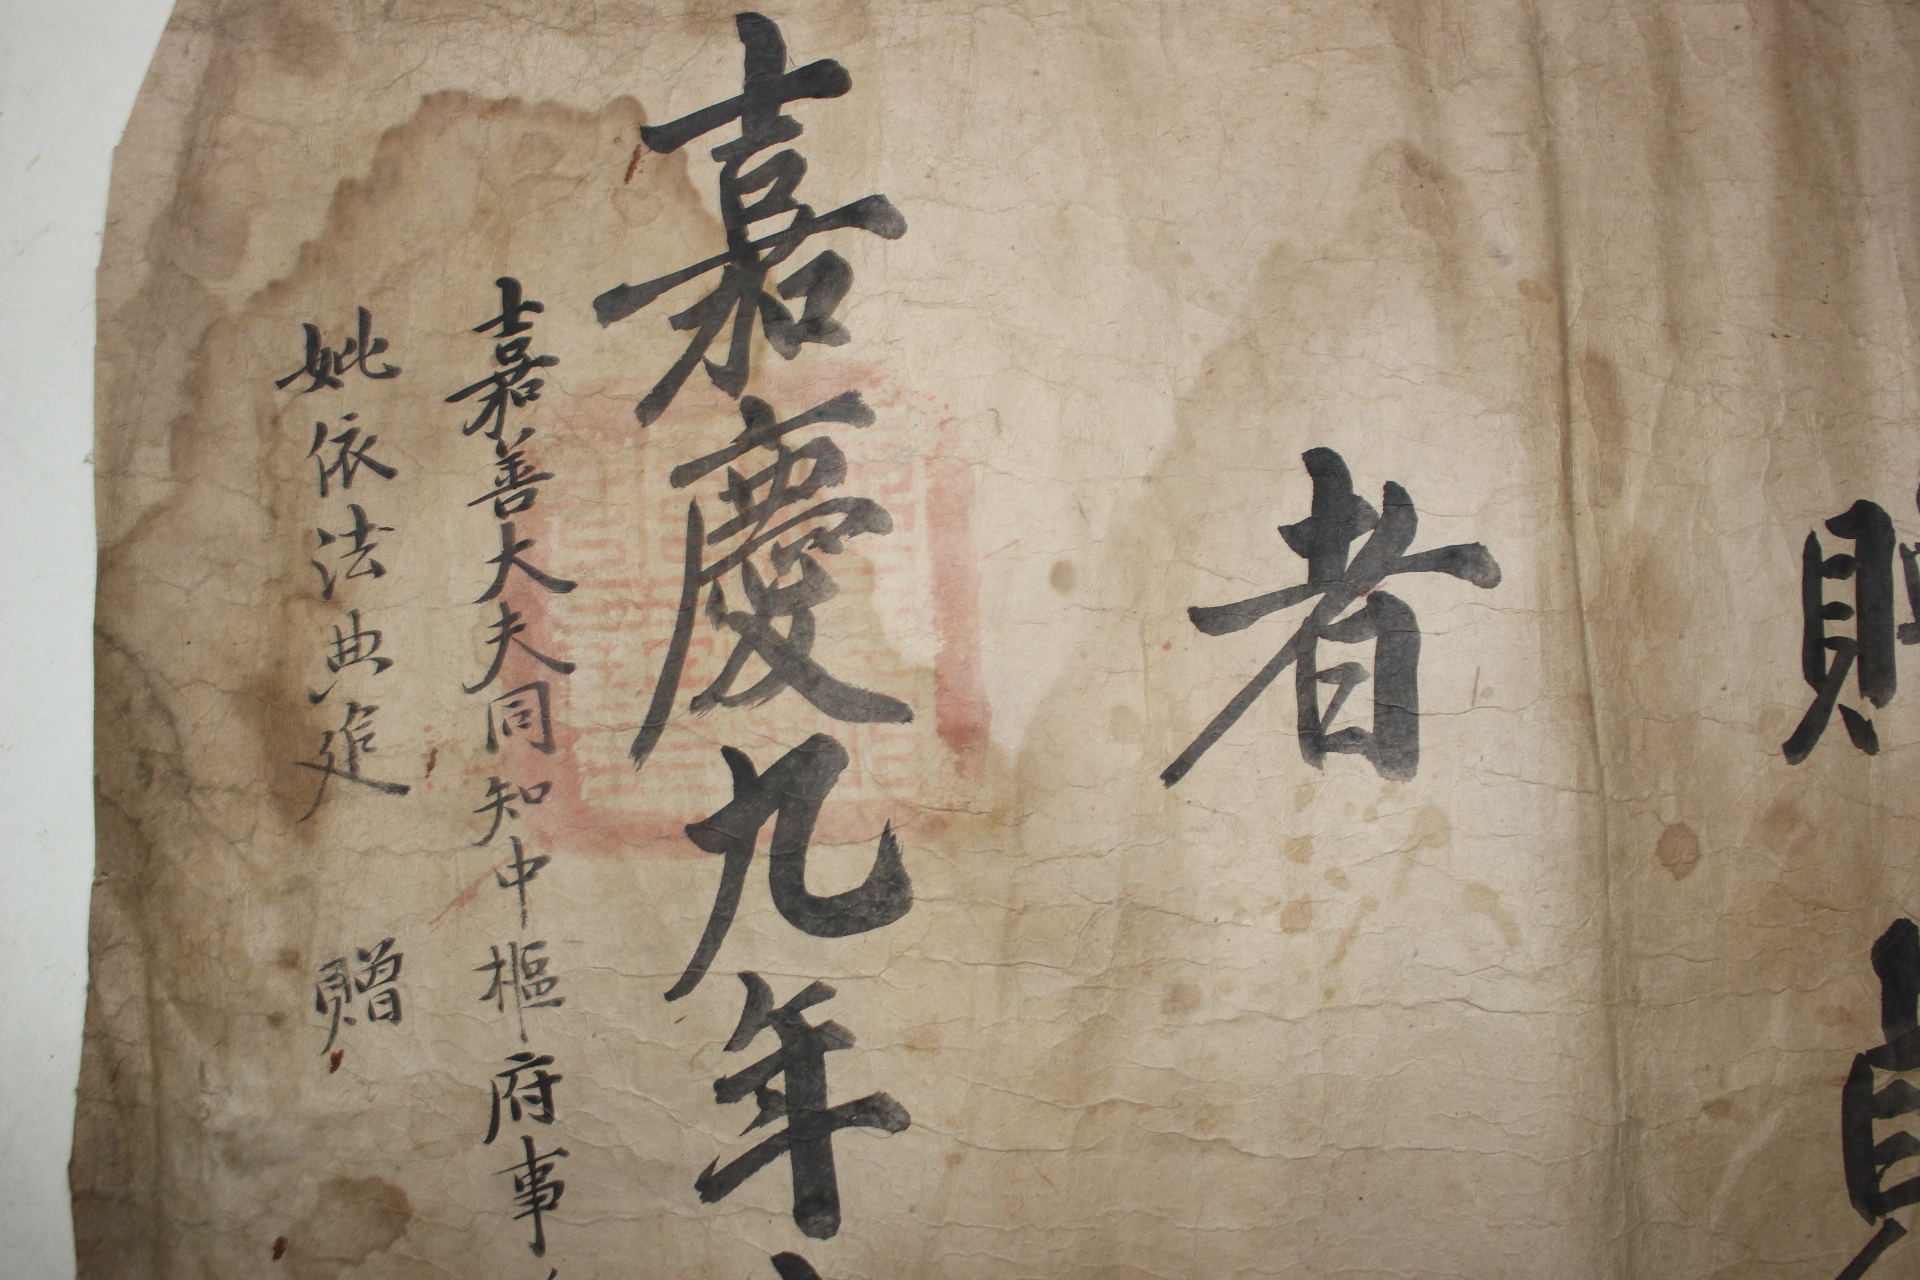 贈
貞
者
嘉慶九年
嘉善大夫同知中樞府事
妣依法典追 贈